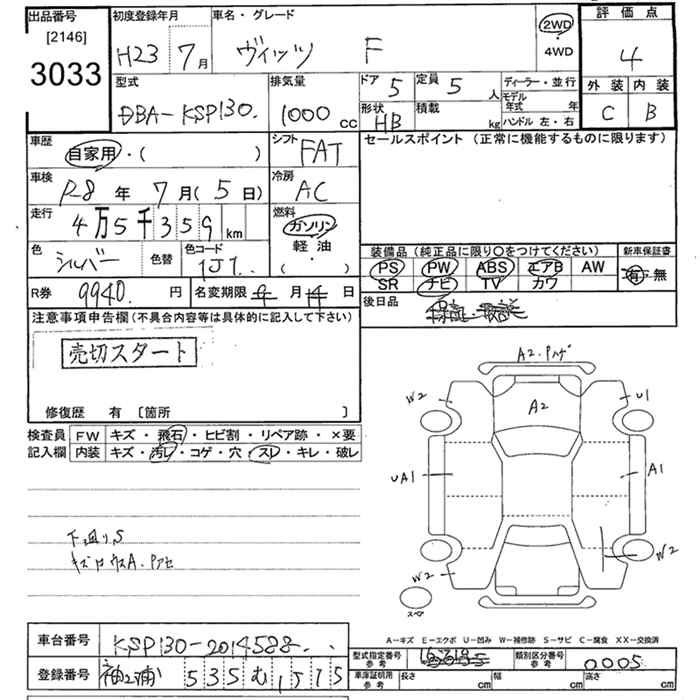 出品番号 初度登録年月 車名・グレード 評価点
[2146] 3033 H23 7月 ヴィッツ F 2WD 4WD 4
型式 排気量 ドア 5 定員 5人 ディーラー・並行 外装 内装
DBA-KSP130. 1000cc 形状 HB 積載 kg モデル年式 年 ハンドル 左・右 C B
車歴 自家用・( ) シフト FAT セールスポイント (正常に機能するものに限ります)
車検 R8年 7月(5日) 冷房 AC
走行 4万5千359km 燃料 ガソリン・軽油・( )
色 シルバー 色替 色コード 1J7. 装備品 (純正品に限り○をつけてください) 新車保証書
PS PW ABS エアB AW 有・無
SR ナビ TV カワ
R券 9940.円 名変期限 月 日 後日品
注意事項申告欄(不具合内容等は具体的に記入して下さい)
売切スタート
修復歴 有 [箇所 ]
検査員記入欄 FW キズ・飛石・ヒビ割・リペア跡・×要
内装 キズ・汚レ・コゲ・穴・スレ・キレ・破レ
A2・Pハゲ
W2 A2 U1
UA1 A1
W2 W2
スペア
下廻りS
A-キズ E-エクボ U-凹み W-補修跡 S-サビ C-腐食 XX-交換済
車台番号 KSP130-2014588
登録番号 袖ヶ浦 535 む 1575
型式指定番号 参考 類別区分番号 参考 0005
車庫証明用 参考 長さ cm 幅 cm 高さ cm